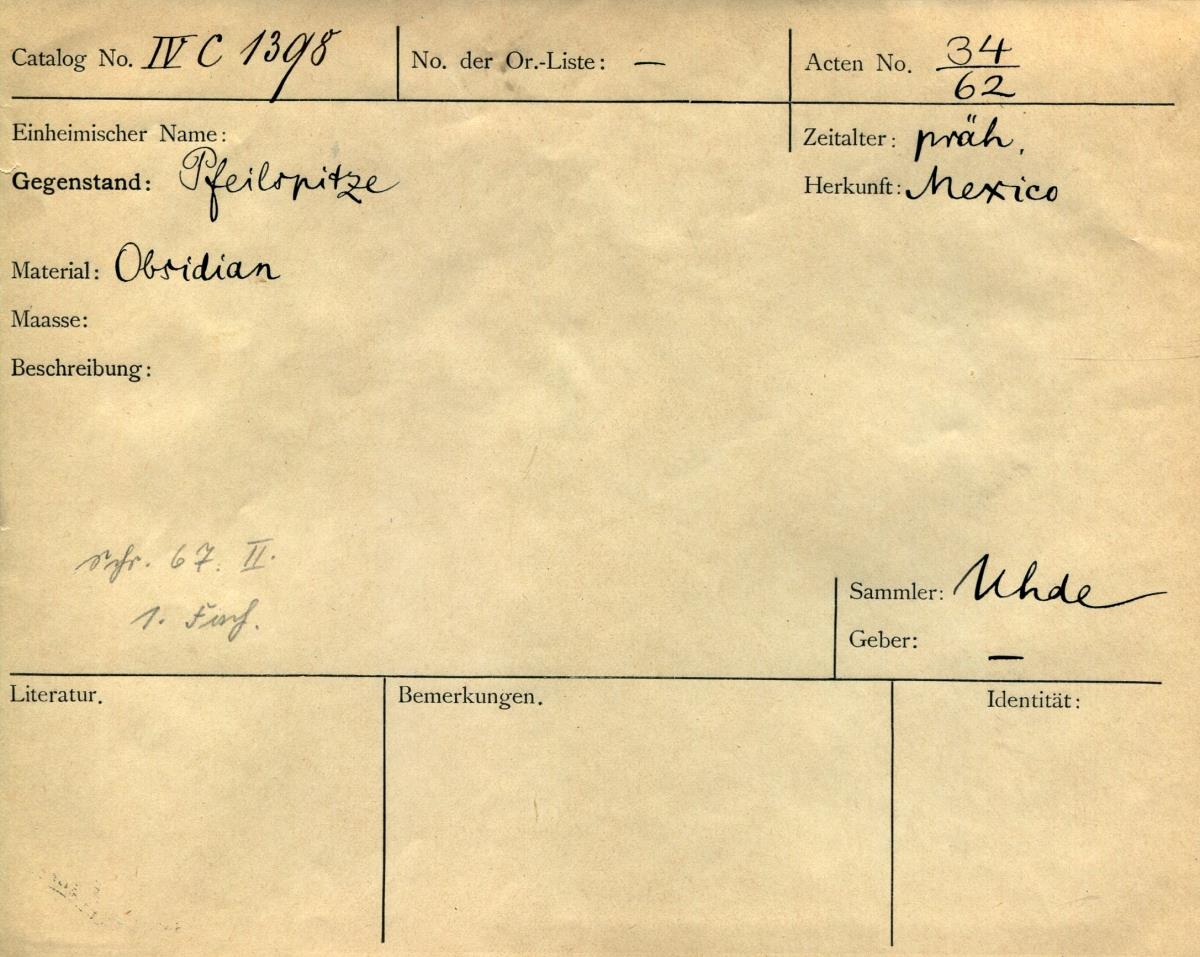 Catalog No. IV C 1398
No. der Or.-Liste: —
Acten No. 34/62
Einheimischer Name:
Zeitalter: präh.
Gegenstand: Pfeilspitze
Herkunft: Mexico
Material: Obsidian
Maasse:
Beschreibung:
Schr. 67. II.
1. Fach.
Sammler: Uhde
Geber: —
Literatur.
Bemerkungen.
Identität: